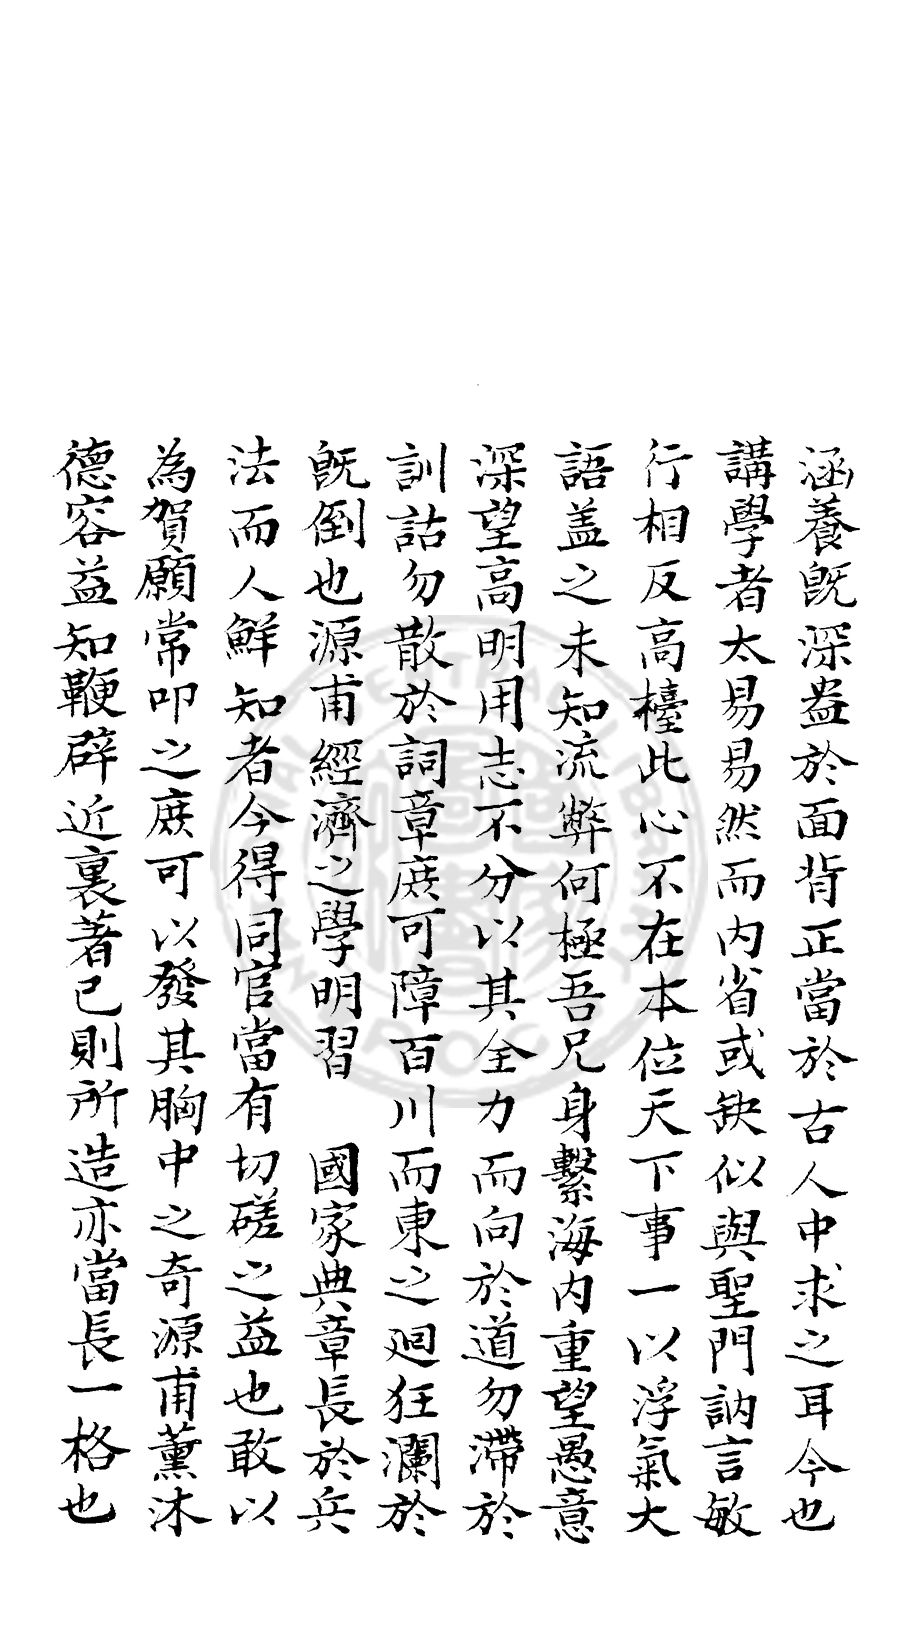 涵養旣深盎於面背正當於古人中求之耳今也
講學者太易易然而内省或缺似與聖門訥言敏
行相反高檯此心不在本位天下事一以浮氣大
語盖之未知流弊何極吾兄身繫海内重望愚意
深望高明用志不分以其全力而向於道勿滯於
訓詁勿散於詞章庻可障百川而東之廻狂瀾於
旣倒也源甫經濟之學明習　國家典章長於兵
法而人鮮知者今得同官當有切磋之益也敢以
為賀願常叩之庻可以發其胸中之奇源甫薰沐
德容益知鞭辟近裏著已則所造亦當長一格也